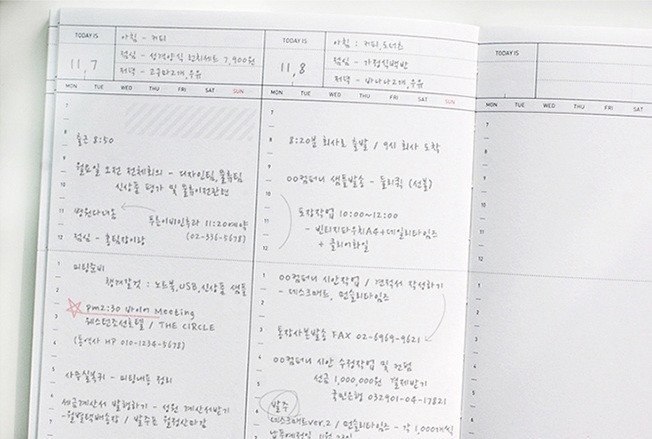 TODAY IS
11.7
아침 - 커피
점심 - 성게알식 런치세트 7,900원
저녁 - 고구마2개, 우유
MON TUE WED THU FRI SAT SUN
7
8
9
10
11
12
출근 8:50
월요일 오전 전체회의 - 디자인팀, 물류팀
신상품 평가 및 물류이전관련
병원다녀옴
푸른이비인후과 11:20예약
(02-336-5678)
점심 - 홍팀장이랑
1
2
3
4
5
6
미팅준비
챙겨갈것 : 노트북, USB, 신상품 샘플
pm2:30 바이어 Meeting
웨스틴조선호텔 / THE CIRCLE
(통역사 HP 010-1234-5678)
사무실복귀 - 미팅내용 정리
세금계산서 발행하기 - 성원 계산서받기
- 월별택배송장 / 발주표 월정산마감
TODAY IS
11.8
아침 : 커피, 도너츠
점심 - 가정식백반
저녁 - 바나나2개, 우유
MON TUE WED THU FRI SAT SUN
7
8
9
10
11
12
8:20분 회사로 출발 / 9시 회사 도착
00컴퍼니 샘플발송 - 퀵 (선불)
도장작업 10:00~12:00
- 빈티지파우치A4+데일리타임즈
+ 클리어화일
1
2
3
4
00컴퍼니 시안작업 / 견적서 작성하기
- 데스크매트, 먼슬리타임즈
통장사본발송 FAX 02-6969-9621
00컴퍼니 시안 수정작업 및 컨펌
선금 1,000,000원 결제받기
국민은행 032901-04-17821
발주
데스크매트ver.2 / 먼슬리타임즈 - 각 1,000개씩
납품예정일 11월
TODAY IS
MON TUE WED THU FRI SAT